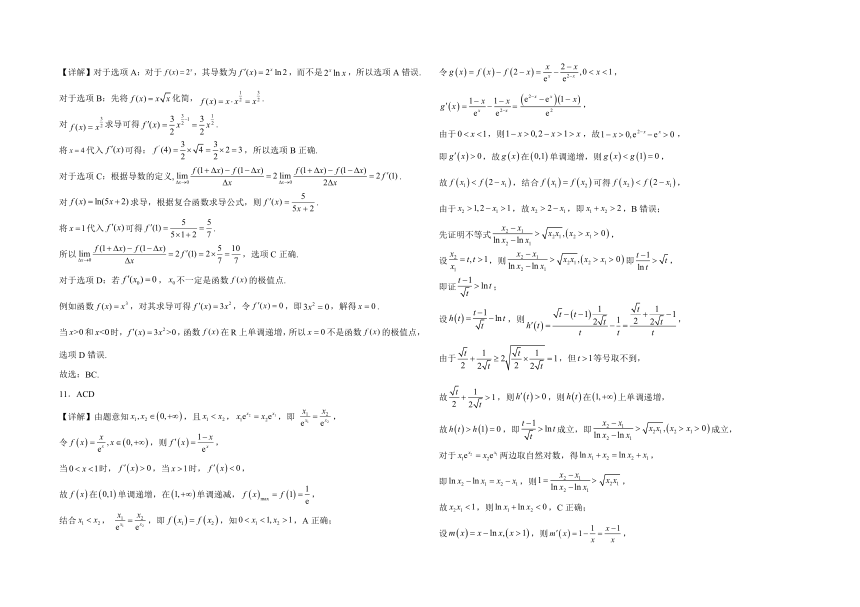 【详解】对于选项A:对于 f(x)=2ˣ,其导数为 f′(x)=2ˣ ln2,而不是 2ˣ ln x,所以选项A错误.
对于选项B:先将 f(x)=x√x 化简, f(x)=x·x^(1/2)=x^(3/2).
对 f(x)=x^(3/2) 求导可得 f′(x)=(3/2)x^(3/2−1)=(3/2)x^(1/2).
将 x=4 代入 f′(x) 可得: f′(4)=3/2×√4=3/2×2=3,所以选项B正确.
对于选项C:根据导数的定义, lim(Δx→0) [f(1+Δx)−f(1−Δx)]/Δx = 2 lim(Δx→0) [f(1+Δx)−f(1−Δx)]/(2Δx) = 2f′(1).
对 f(x)=ln(5x+2) 求导,根据复合函数求导公式,则 f′(x)=5/(5x+2).
将 x=1 代入 f′(x) 可得 f′(1)=5/(5×1+2)=5/7.
所以 lim(Δx→0) [f(1+Δx)−f(1−Δx)]/Δx=2f′(1)=2×5/7=10/7,选项C正确.
对于选项D:若 f′(x₀)=0, x₀ 不一定是函数 f(x) 的极值点.
例如函数 f(x)=x³,对其求导可得 f′(x)=3x²,令 f′(x)=0,即 3x²=0,解得 x=0.
当x>0和x<0时, f′(x)=3x²>0,函数 f(x) 在R上单调递增,所以 x=0 不是函数 f(x) 的极值点,
选项D错误.
故选:BC.
11.ACD
【详解】由题意知 x₁,x₂∈(0,+∞),且 x₁<x₂, x₁e^(x₂)=x₂e^(x₁),即 x₁/e^(x₁)=x₂/e^(x₂),
令 f(x)=x/eˣ,x∈(0,+∞),则 f′(x)=(1−x)/eˣ,
当 0<x<1 时, f′(x)>0,当 x>1 时, f′(x)<0,
故 f(x) 在 (0,1) 单调递增,在 (1,+∞) 单调递减, f(x)max=f(1)=1/e,
结合 x₁<x₂, x₁/e^(x₁)=x₂/e^(x₂),即 f(x₁)=f(x₂),知 0<x₁<1,x₂>1,A正确;
令 g(x)=f(x)−f(2−x)=x/eˣ−(2−x)/e^(2−x),0<x<1,
g′(x)=(1−x)/eˣ−(1−x)/e^(2−x)=(e^(2−x)−eˣ)(1−x)/e²,
由于 0<x<1,则 1−x>0,2−x>1>x,故 1−x>0,e^(2−x)−eˣ>0,
即 g′(x)>0,故 g(x) 在 (0,1) 单调递增,则 g(x)<g(1)=0,
故 f(x₁)<f(2−x₁),结合 f(x₁)=f(x₂) 可得 f(x₂)<f(2−x₁),
由于 x₂>1,2−x₁>1,故 x₂>2−x₁,即 x₁+x₂>2,B错误;
先证明不等式 (x₂−x₁)/(ln x₂−ln x₁)>√(x₂x₁),(x₂>x₁>0),
设 x₂/x₁=t,t>1,则 (x₂−x₁)/(ln x₂−ln x₁)>√(x₂x₁),(x₂>x₁>0) 即 (t−1)/ln t>√t,
即证 (t−1)/√t>ln t;
设 h(t)=(t−1)/√t−ln t,则 h′(t)=[√t−(t−1)·1/(2√t)]/t−1/t=[√t/2+1/(2√t)−1]/t,
由于 √t/2+1/(2√t)≥2√(√t/2×1/(2√t))=1,但 t>1 等号取不到,
故 √t/2+1/(2√t)>1,则 h′(t)>0,则 h(t) 在 (1,+∞) 上单调递增,
故 h(t)>h(1)=0,即 (t−1)/√t>ln t 成立,即 (x₂−x₁)/(ln x₂−ln x₁)>√(x₂x₁),(x₂>x₁>0) 成立,
对于 x₁e^(x₂)=x₂e^(x₁) 两边取自然对数,得 ln x₁+x₂=ln x₂+x₁,
即 ln x₂−ln x₁=x₂−x₁,则 1=(x₂−x₁)/(ln x₂−ln x₁)>√(x₂x₁),
故 x₂x₁<1,则 ln x₁+ln x₂<0,C正确;
设 m(x)=x−ln x,(x>1),则 m′(x)=1−1/x=(x−1)/x,